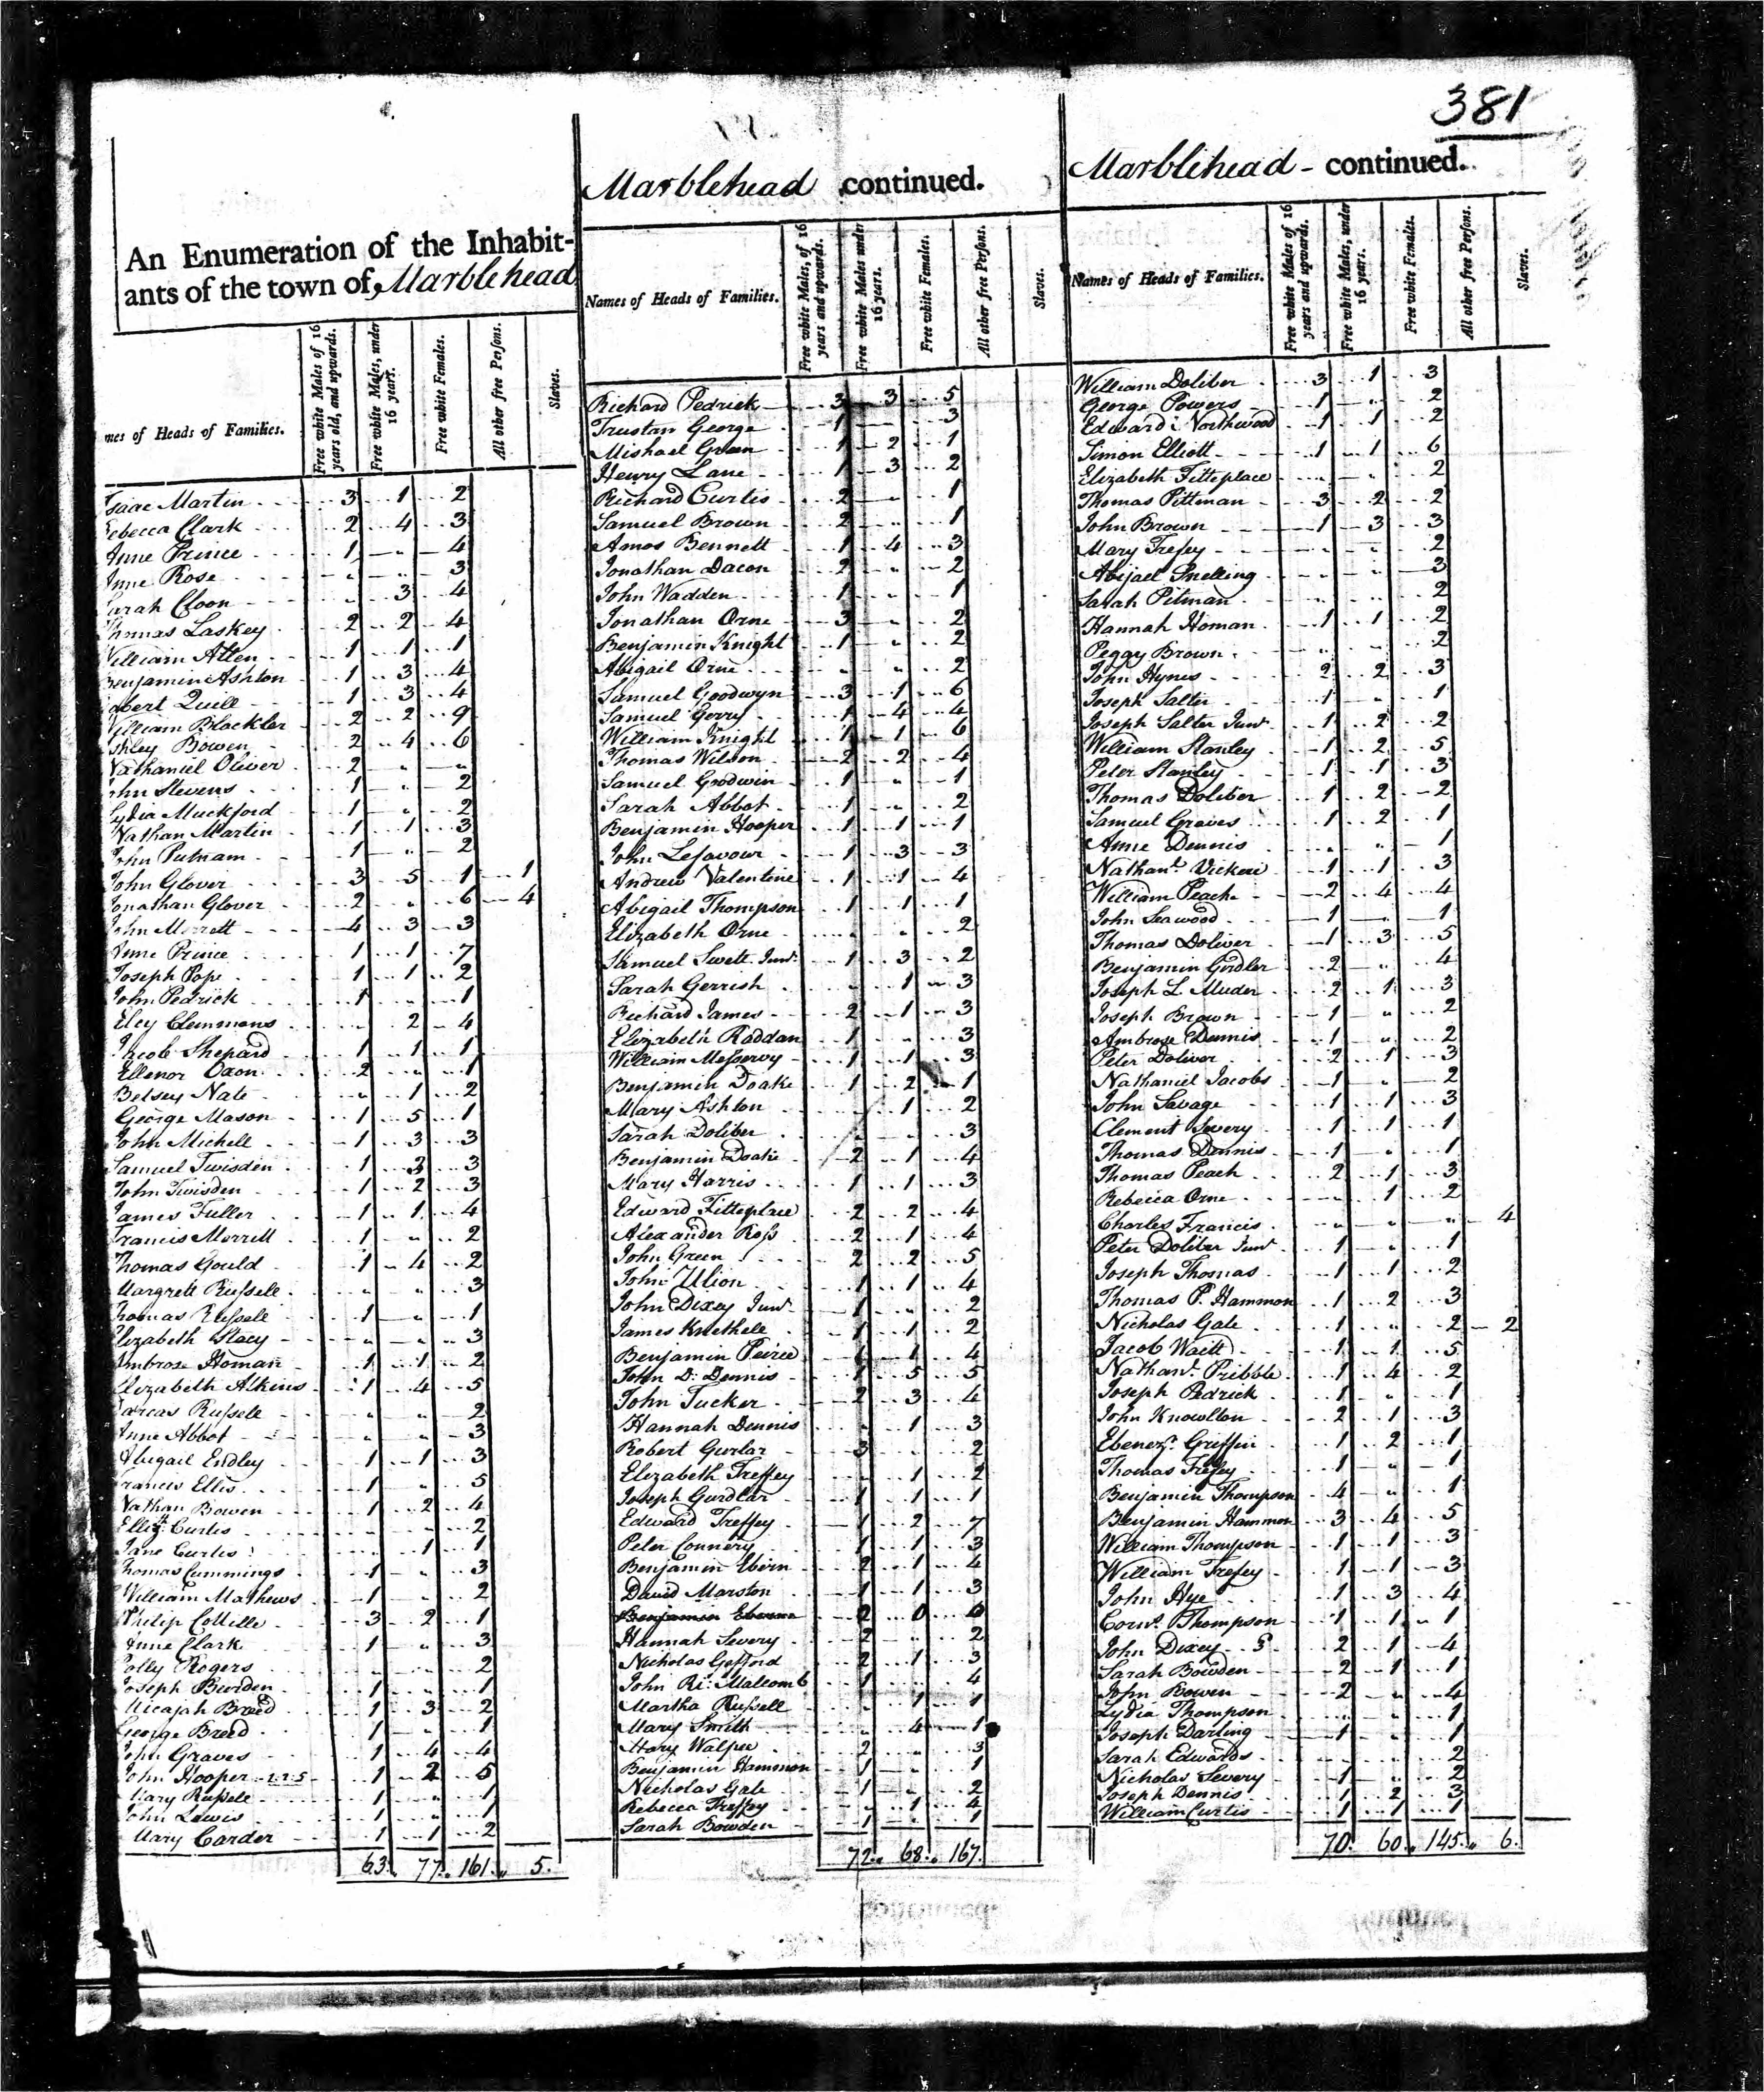 381
An Enumeration of the Inhabit-
ants of the town of, Marblehead
mes of Heads of Families. Free white Males of 16 years old, and upwards. Free white Males, under 16 years. Free white Females. All other free Persons. Slaves.
Isaac Martin 3 1 2
Rebecca Clark 2 4 3
Anne Prince 1 " 4
Anne Rose " " 3
Sarah Cloon " 3 4
Thomas Laskey 2 2 4
William Allen 1 1 1
Benjamin Ashton 1 3 4
Robert Quill 1 3 4
William Blackler 2 2 9
Ashley Bowen 2 4 6
Nathaniel Oliver 2 " "
John Stevens 1 " 2
Lydia Muckford 1 " 2
Nathan Martin 1 1 3
John Putnam 1 " 2
John Glover 3 5 1 1
Jonathan Glover 2 " 6 4
John Merrett 4 3 3
Anne Prince 1 1 7
Joseph Pope 1 1 2
John Pedrick 1 " 1
Eley Clemmons " 2 4
Shepard 1 1 1
Ellenor Oxon 2 " 1
Betsey Nate " 1 2
George Mason 1 5 1
John Michell 1 3 3
Samuel Twisden 1 2 3
John Twisden 1 2 3
James Fuller 1 1 4
Francis Merrill 1 " 2
Thomas Gould 1 4 2
Margrett Russele " " 3
Thomas Russele 1 " 1
Elizabeth Stacy " " 3
Ambrose Homan 1 1 2
Elizabeth Atkins 1 4 5
Darcas Russele " " 2
Anne Abbot " " 3
Abigail Endley 1 1 3
Francis Ellis 1 " 5
Nathan Bowen 1 2 4
Elliz. Curtis " " 2
Jane Curtis " 1 1
Thomas Cummings 1 " 3
William Mathews 1 " 2
Philip Collille 3 2 1
Anne Clark 1 " 3
Polly Rogers " " 2
Joseph Burden 1 " 1
Micajah Breed 1 3 2
George Breed 1 " 1
John Graves 1 4 4
John Hooper 1 2 5
Mary Russele 1 " 1
John Lewis 1 " 1
Mary Carder 1 1 2
63. 77. 161. 5.
Marblehead continued.
Names of Heads of Families. Free white Males, of 16 years and upwards. Free white Males under 16 years. Free white Females. All other free Persons. Slaves.
Richard Pedrick 3 3 5
Trustan George 1 3
Mishael Green 1 2 1
Henry Lane 1 3 2
Richard Curtis 2 " 1
Samuel Brown 2 " 1
Amos Bennett 1 4 3
Jonathan Dacon 2 " 2
John Wadden 1 " 1
Jonathan Orne 3 " 2
Benjamin Knight 1 " 2
Abigail Orne " " 2
Samuel Goodwyn 3 1 6
Samuel Gerry 1 4 4
William Knight 1 1 6
Thomas Wilson 2 2 4
Samuel Goodwin 1 " 1
Sarah Abbot 1 " 2
Benjamin Hooper 1 1 1
John Lefavour 1 3 3
Andrew Valentine 1 1 4
Abigail Thompson 1 1 1
Elizabeth Orne " " 2
Samuel Swett Junr. 1 3 2
Sarah Gerrish " 1 3
Richard James 2 1 3
Elizabeth Raddan 1 " 3
William Messervy 1 1 3
Benjamin Doake 1 2 1
Mary Ashton 1 2
Sarah Doliber " " 3
Benjamin Doake 2 1 4
Mary Harris 1 1 3
Edward Fitteplace 2 2 4
Alexander Ross 2 1 4
John Green 2 2 5
John Ulion 1 1 4
John Dixey Junr. 1 " 2
James Knethele 1 1 2
Benjamin Peirce 1 1 4
John D: Dennis 1 5 5
John Tucker 2 3 4
Hannah Dennis " 1 3
Robert Gurlar 3 " 2
Elizabeth Treffey " 1 2
Joseph Gurdlar 1 1 1
Edward Treffey 1 2 7
Peter Connery 1 1 3
Benjamin Ebern 2 1 4
David Marston 1 1 3
Benjamin 2 0 0
Hannah Severy 2 " 2
Nicholas Gefford 2 1 3
John Ri: Malcomb 1 " 4
Martha Russell " 1 1
Mary Smith " 4 1
Mary Walpee 2 " 3
Benjamin Hammon 1 " 1
Nicholas Gale 1 " 2
Rebecca Treffey " 1 4
Sarah Bowden 1 " 1
72. 68. 167.
Marblehead - continued.
Names of Heads of Families. Free white Males of 16 years and upwards. Free white Males, under 16 years. Free white Females. All other free Persons. Slaves.
William Doliber 3 1 3
George Powers 1 " 2
Edward Northwood 1 1 2
Simon Elliott 1 1 6
Elizabeth Fitteplace " " 2
Thomas Pittman 3 2 2
John Brown 1 3 3
Mary Trefey " " 2
Abijael Snelling " " 3
Sarah Pitman " " 2
Hannah Homan 1 1 2
Peggy Brown " " 2
John Hynes 2 2 3
Joseph Salter 1 " 1
Joseph Salter Junr. 1 2 2
William Stanley 1 2 5
Peter Stanley 1 1 3
Thomas Doliber 1 2 2
Samuel Graves 1 2 1
Anne Dennis " " 1
Nathanl. Vickere 1 1 3
William Peach 2 4 4
John Seawood 1 " 1
Thomas Doliver 1 3 5
Benjamin Girdler 2 " 4
Joseph L. Muder 2 1 3
Joseph Brown 1 " 2
Ambrose Dennis 1 " 2
Peter Doliver 2 1 3
Nathaniel Jacobs 1 " 2
John Savage 1 1 3
Clement Severy 1 1 1
Thomas Dennis 1 " 1
Thomas Peach 2 1 3
Rebecca Orne " 1 2
Charles Francis " " " 4
Peter Doliber Junr. 1 " 1
Joseph Thomas 1 1 2
Thomas P. Hammon 1 2 3
Nicholas Gale 1 " 2 2
Jacob Waitt 1 1 5
Nathanl. Pribble 1 4 2
Joseph Pedrick 1 " 1
John Knowlton 2 1 3
Ebenezr. Griffin 1 2 1
Thomas Trefey 1 " 1
Benjamin Thompson 4 " 1
Benjamin Hammon 3 4 5
William Thompson 1 1 3
William Trefey 1 1 3
John Hye 1 3 4
Cornl. Thompson 1 1 1
John Dixey 2 1 4
Sarah Bowden 2 1 1
John Bowen 2 " 4
Lydia Thompson " " 1
Joseph Darling 1 " 1
Sarah Edwards " " 2
Nicholas Severy 1 " 2
Joseph Dennis 1 2 3
William Curtis 1 1 1
70. 60. 145. 6.